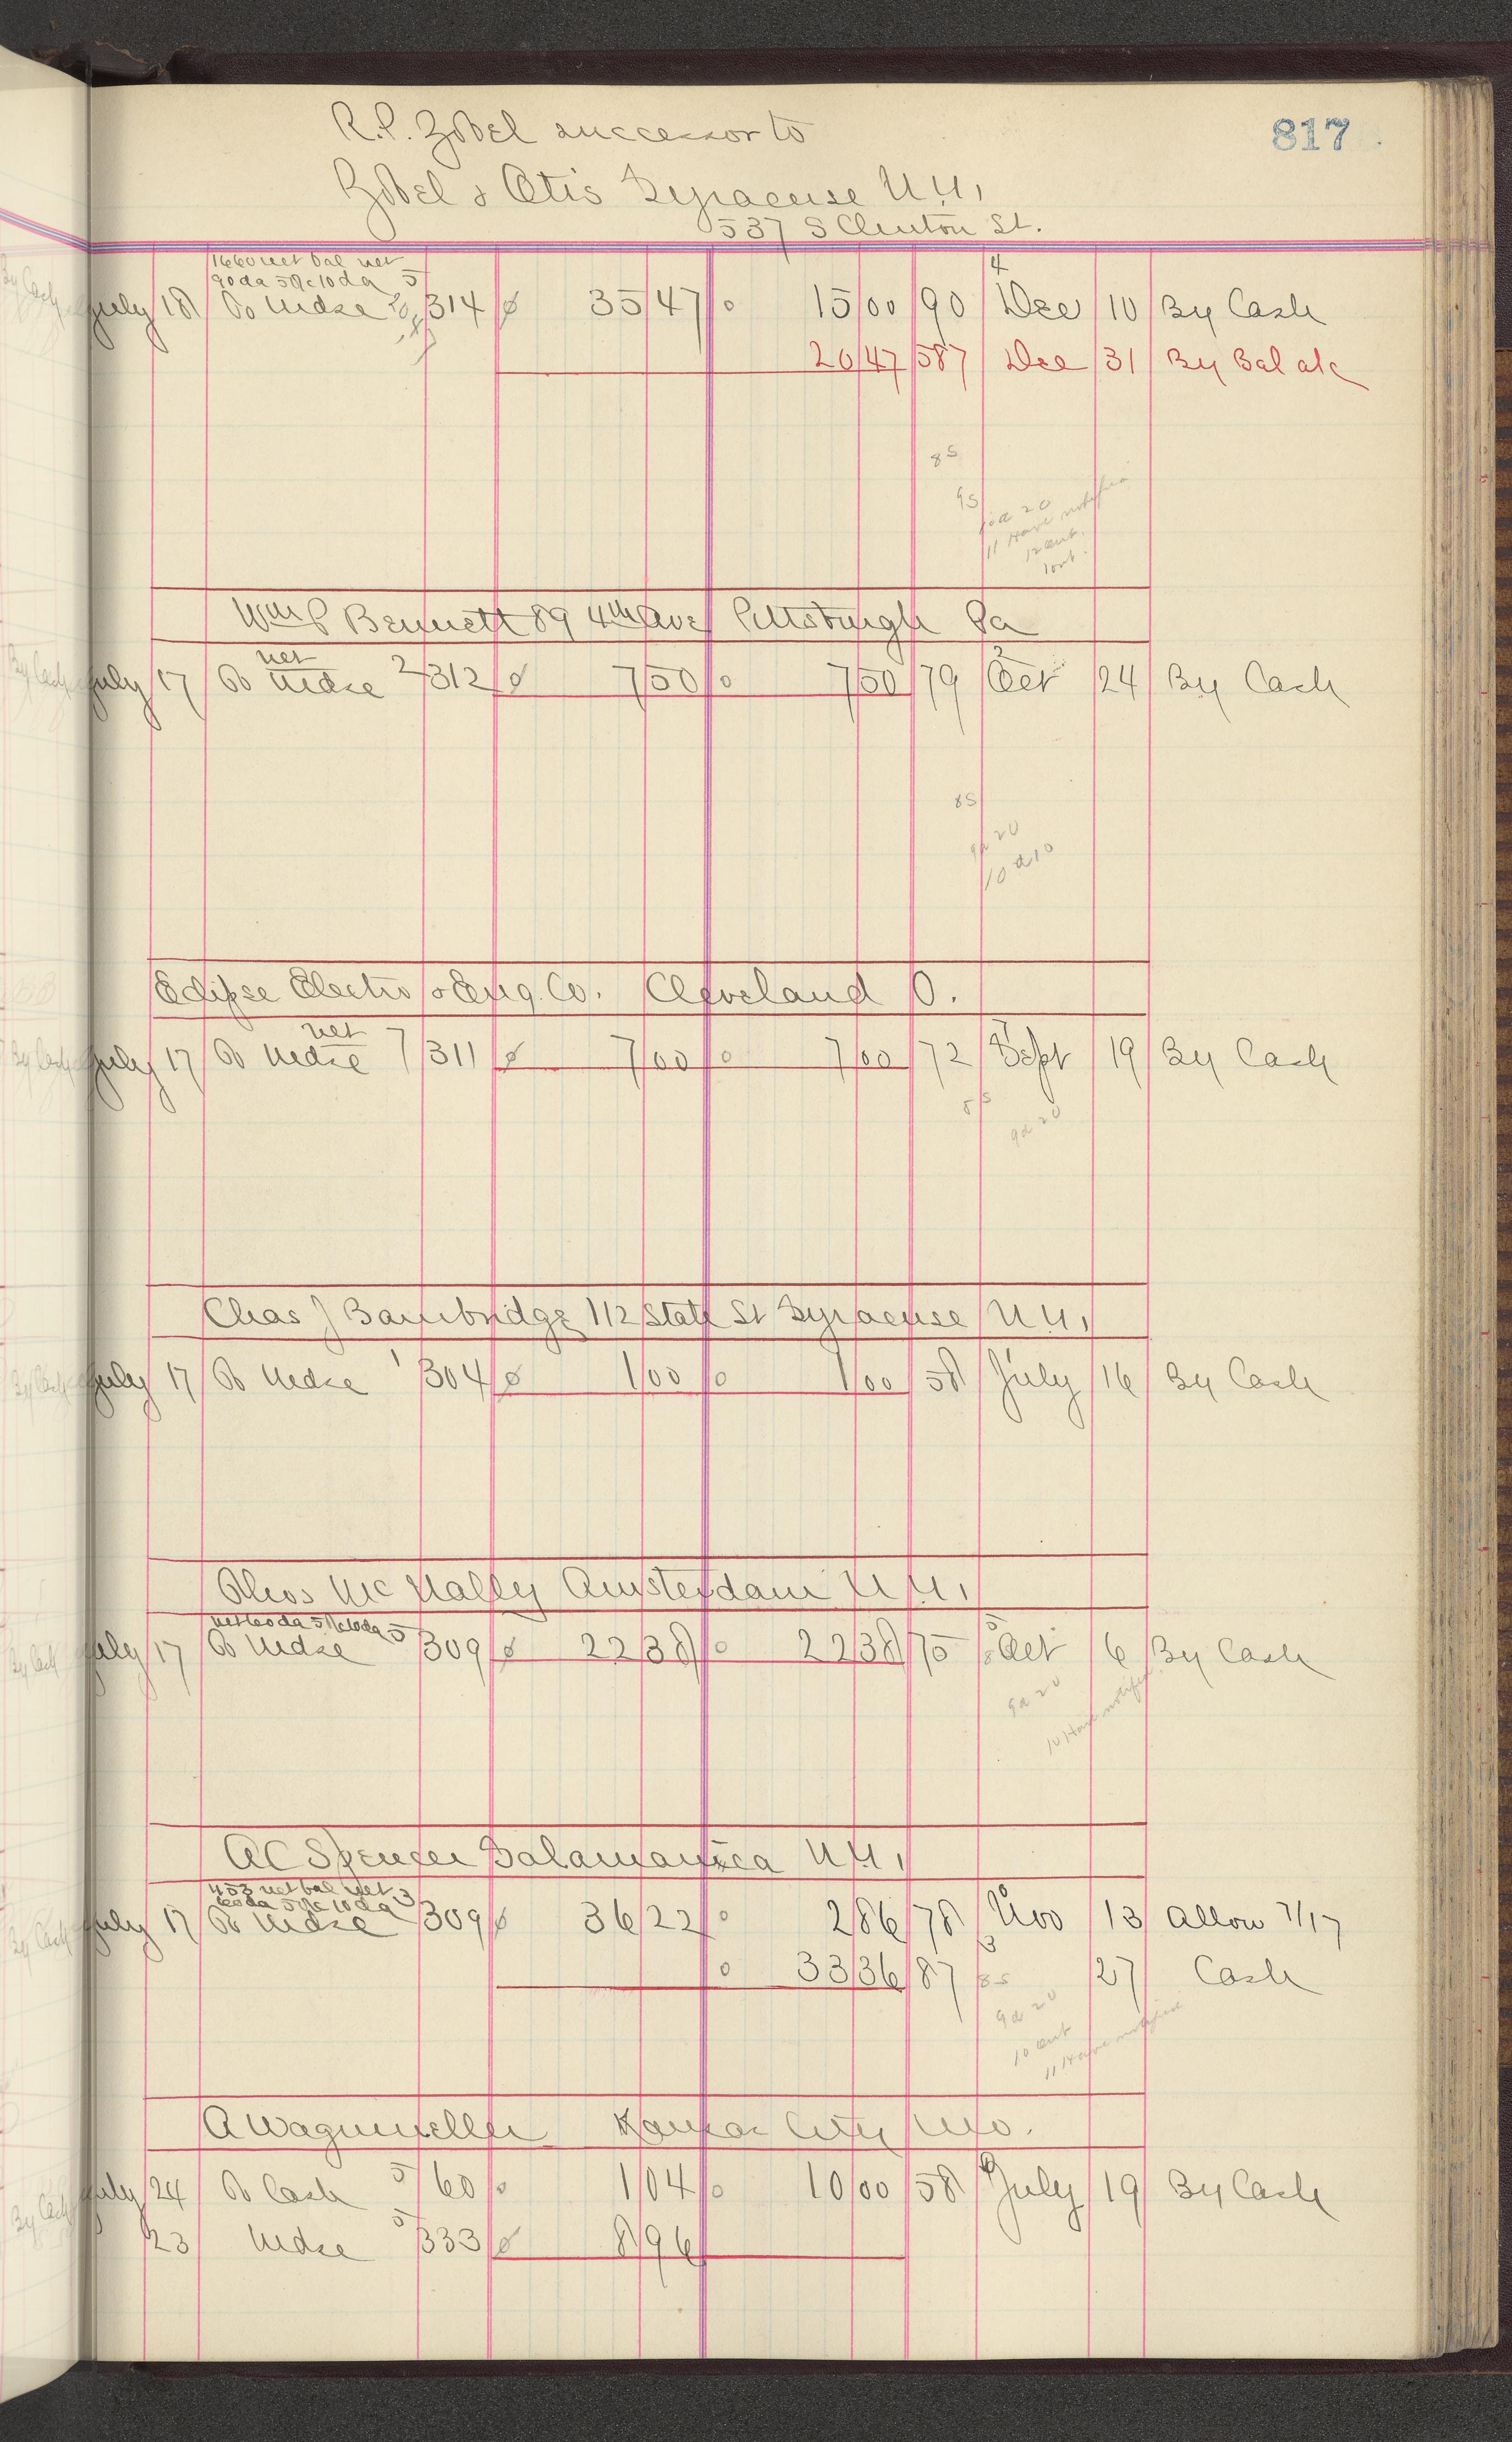 817
R.P. Zobel successor to
Zobel & Otis Syracuse N.Y.
537 S Clinton St.
1660 net bal net
90 da 5% 10 da 5
July 18 To Mdse 314 35 47 15 00 90 Dec 10 By Cash
20 47 587 Dec 31 By Bal a/c
8 S
9 S
10 a 20
11 Have notified
12 ent.
1 ent.
Wm P Bennett 89 4th Ave Pittsburgh Pa
net
July 17 To Mdse 2 312 7 50 7 50 79 Oct 24 By Cash
8 S
9 a 20
10 a 10
Eclipse Electro & Eng. Co. Cleveland O.
net
July 17 To Mdse 7 311 7 00 7 00 72 Sept 19 By Cash
8 S
9 a 20
Chas J Bambridge 112 State St Syracuse N.Y.
July 17 To Mdse 1 304 1 00 1 00 58 July 16 By Cash
Thos McNally Amsterdam N.Y.
net 60 da 5% 10 da 5
July 17 To Mdse 309 22 38 22 38 75 Oct 6 By Cash
9 a 20
10 Have notified
A C Spencer Salamanca N.Y.
453 net bal net 3
60 da 5% 10 da
July 17 To Mdse 309 36 22 2 86 78 Nov 13 Allow 7/17
33 36 87 27 Cash
8 S
9 a 20
10 ent
11 Have notified
A Wagumeller Kansas City Mo.
July 24 To Cash 5 60 1 04 10 00 58 July 19 By Cash
23 Mdse 5 333 8 96